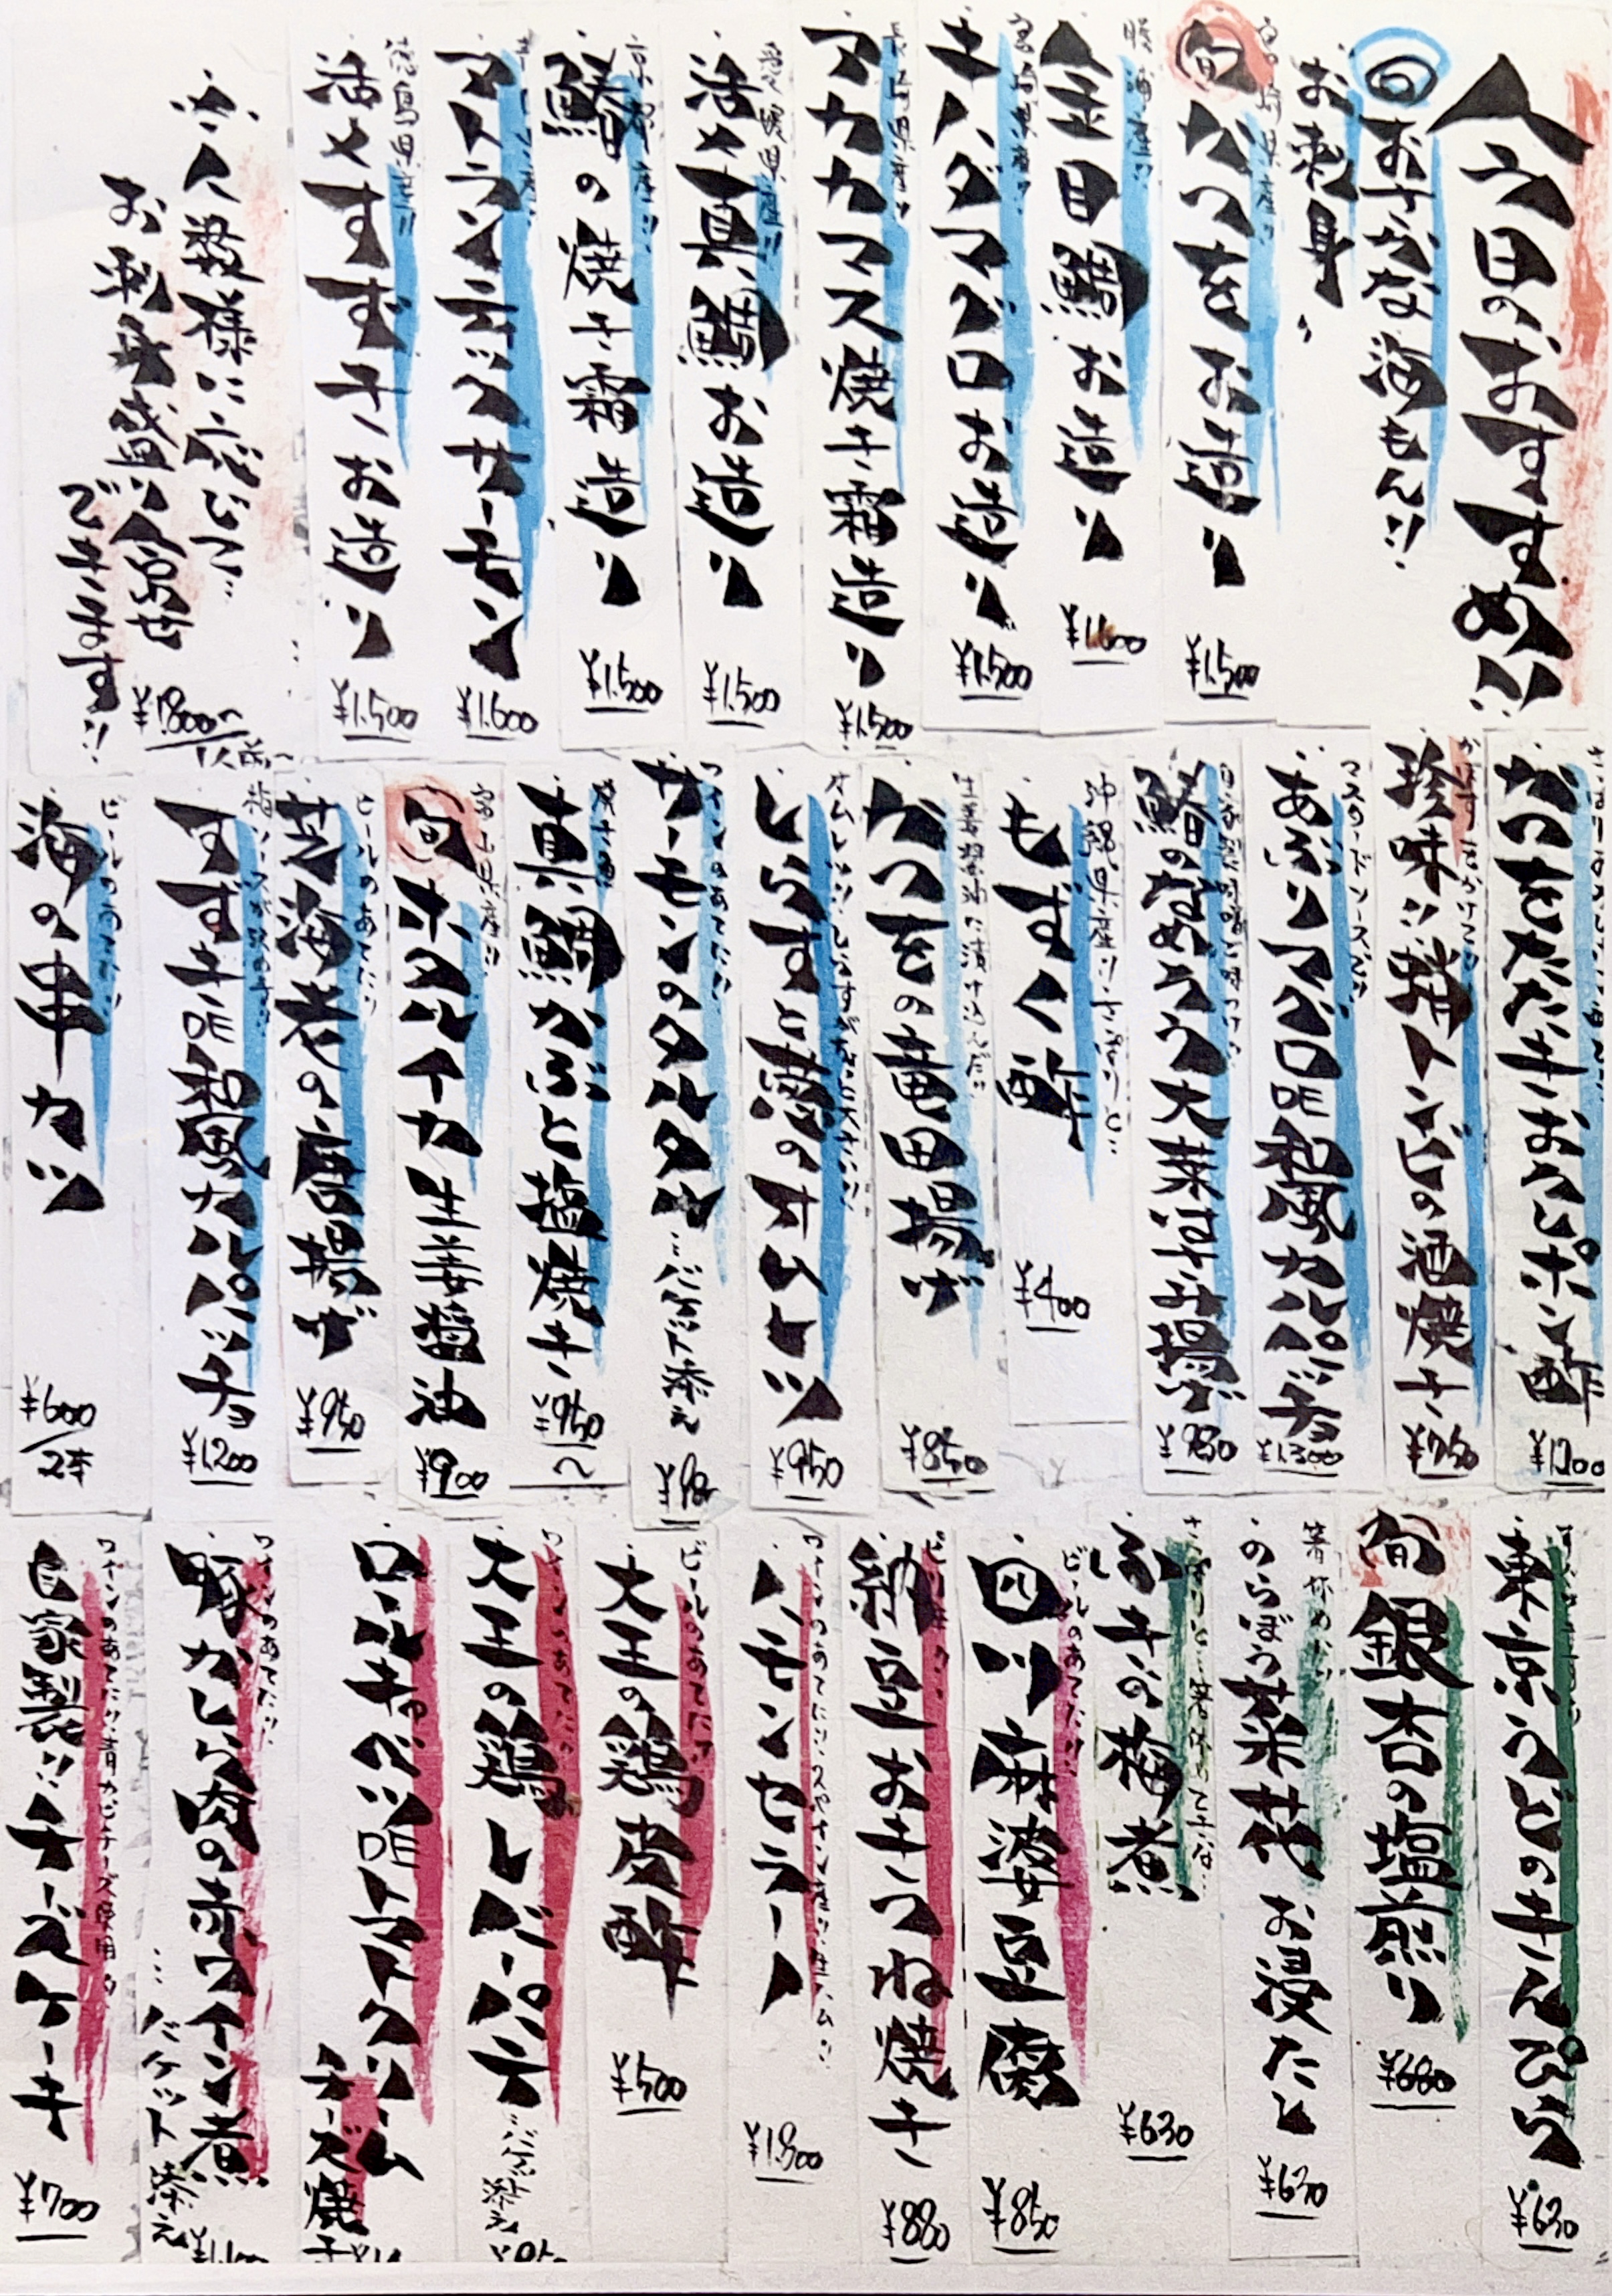 六日のおすすめ!!
旬おさかな海もん!!
お刺身
宮崎県産!!
旬かつをお造り
¥1,500
勝浦産!!
金目鯛お造り
宮崎県産!!
キハダマグロお造り
¥1,500
長崎県産!!
アカカマス焼き霜造り
¥1,500
愛媛県産!!
活〆真鯛お造り
¥1,500
京都産!!
鰆の焼き霜造り
¥1,500
アトランティックサーモン
¥1,600
徳島県産!!
活〆すずきお造り
¥1,500
人数様に応じて…
お刺身盛り合せ
できます!!
¥1,800〜/1人前〜
かつをたたきおろしポン酢
¥1,200
珍味!!鮭トンビの酒焼き
¥750
マスタードソースで!!
あぶりマグロDE和風カルパッチョ
¥1,300
鰆のなめろう大葉はさみ揚げ
沖縄県産!!さっぱりと…
もずく酢
¥400
生姜醤油に漬け込んだ!!
かつをの竜田揚げ
¥850
しらすと葱のオムレツ
¥950
ワインのあてに!!
サーモンのタルタル
…バケット添え
真鯛かぶと塩焼き
¥950〜
富山県産!!
旬ホタルイカ生姜醤油
¥900
ビールのあてに!!
芝海老の唐揚げ
¥950
すずきDE和風カルパッチョ
¥1,200
ビールのあてに!!
海の串カツ
¥600/2本
東京うどのきんぴら
¥630
旬銀杏の塩煎り
¥680
箸休めに!!
のらぼう菜花お浸たし
¥630
ふきの梅煮
¥630
ビールのあてに!!
四川麻婆豆腐
¥850
納豆おきつね焼き
¥880
ワインのあてに!!スペイン産!!生ハム!!
ハモンセラーノ
¥1,800
ビールのあてに!!
大王の鶏皮酢
¥500
ワインのあてに!!
大王の鶏レバーパテ
…バケット添え
ロールキャベツDEトマトクリーム
チーズ焼き
ワインのあてに!!
豚かしら肉の赤ワイン煮
…バケット添え
ワインのあてに!!青カビチーズ使用
自家製!!チーズケーキ
¥700